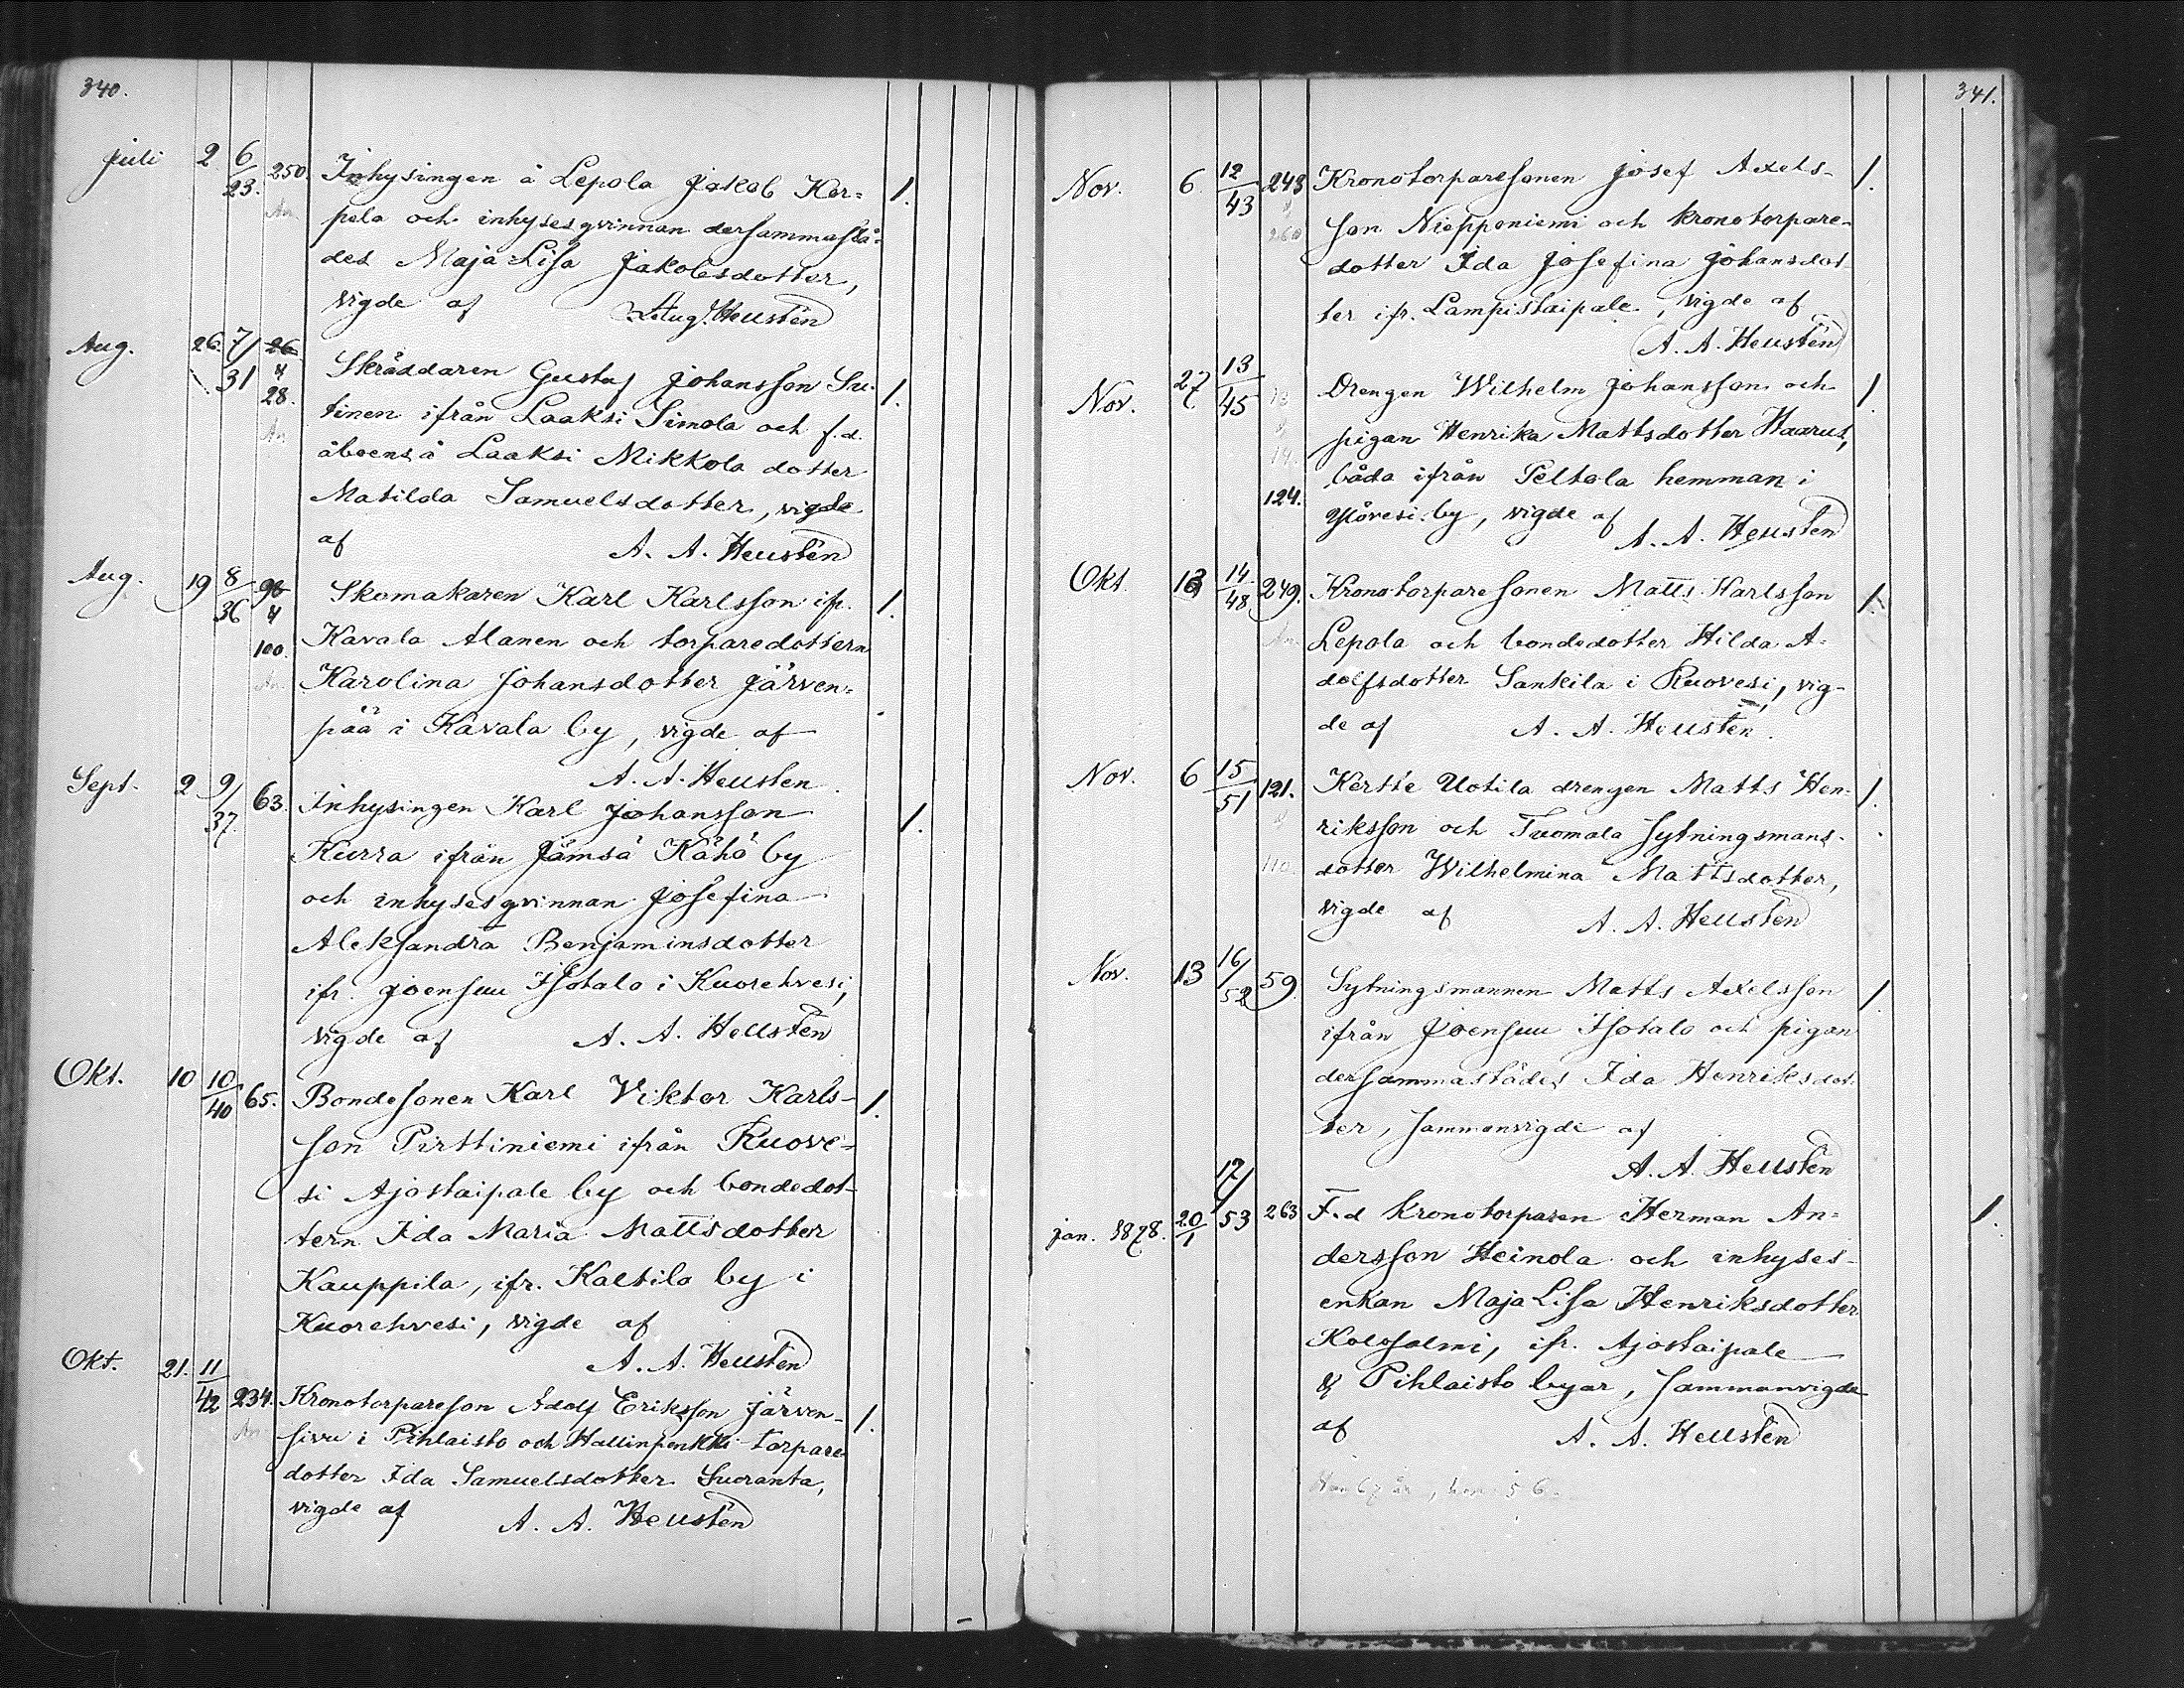 340.
Juli 2 6/23. 250. Inhysingen å Lepola Jakob Ker= 1.
An pela och inhysesqvinnan dersammastä=
des Maja Lisa Jakobsdotter,
vigde af Aug. Heusten
Aug. 26. 7/31 26 & 28. Skräddaren Gustaf Johansson Su- 1.
An tinen ifrån Laaksi Simola och f.d.
åboens å Laaksi Mikkola dotter
Matilda Samuelsdotter, vigde
af A. A. Heusten
Aug. 19 8/36 98 & 100. Skomakaren Karl Karlsson ifr. 1.
Kavala Alanen och torparedottern
An Karolina Johansdotter Järven=
pää i Kavala by, vigde af
A. A. Heusten.
Sept. 2 9/37. 63. Inhysingen Karl Johansson 1.
Kurra ifrån Jämsä Kähö by
och inhysesqvinnan Josefina
Aleksandra Benjaminsdotter
ifr. Joensuu Isotalo i Kuorehvesi,
vigde af A. A. Heusten
Okt. 10 10/40 65. Bondesonen Karl Viktor Karls- 1.
son Pirttiniemi ifrån Ruove-
si Ajostaipale by och bondedot-
tern Ida Maria Mattsdotter
Kauppila, ifr. Kaltila by i
Kuorehvesi, vigde af
A. A. Heusten
Okt. 21. 11/42 234. Kronotorpareson Adolf Eriksson Järven- 1.
An sivu i Pihlaisto och Hallinpenkki torpare
dotter Ida Samuelsdotter Suoranta,
vigde af A. A. Heusten
341.
Nov. 6 12/43 243 & 260 Kronotorparesonen Josef Axels- 1.
son Niepponiemi och kronotorpare-
dotter Ida Josefina Johansdot-
ter ifr. Lampistaipale, vigde af
A. A. Heusten
Nov. 27 13/45 Drengen Wilhelm Johansson och 1.
pigan Henrika Mattsdotter Haarus,
båda ifrån Peltola hemman i
124. Ylövesi by, vigde af A. A. Heusten
Okt. 13 14/48 249. Kronotorparesonen Matts Karlsson 1.
An. Lepola och bondedotter Hilda A-
dolfsdotter Sankila i Ruovesi, vig-
de af A. A. Heusten.
Nov. 6 15/51 121. & 110. Kertte Uotila drengen Matts Hen- 1.
riksson och Tuomala sytningsmans-
dotter Wilhelmina Mattsdotter,
vigde af A. A. Heusten
Nov. 13 16/52 59. Sytningsmannen Matts Axelsson 1.
ifrån Joensuu Isotalo och pigan
dersammastädes Ida Henriksdot-
ter, sammanvigde af
A. A. Heusten
Jan. 1878. 20/1 17/53 263 F.d kronotorparen Herman An= 1.
dersson Heinola och inhyses-
enkan Maja Lisa Henriksdotter
Kolosalmi, ifr. Ajostaipale
& Pihlaisto byar, sammanvigde
af A. A. Heusten
Han 67 år, hon 56.